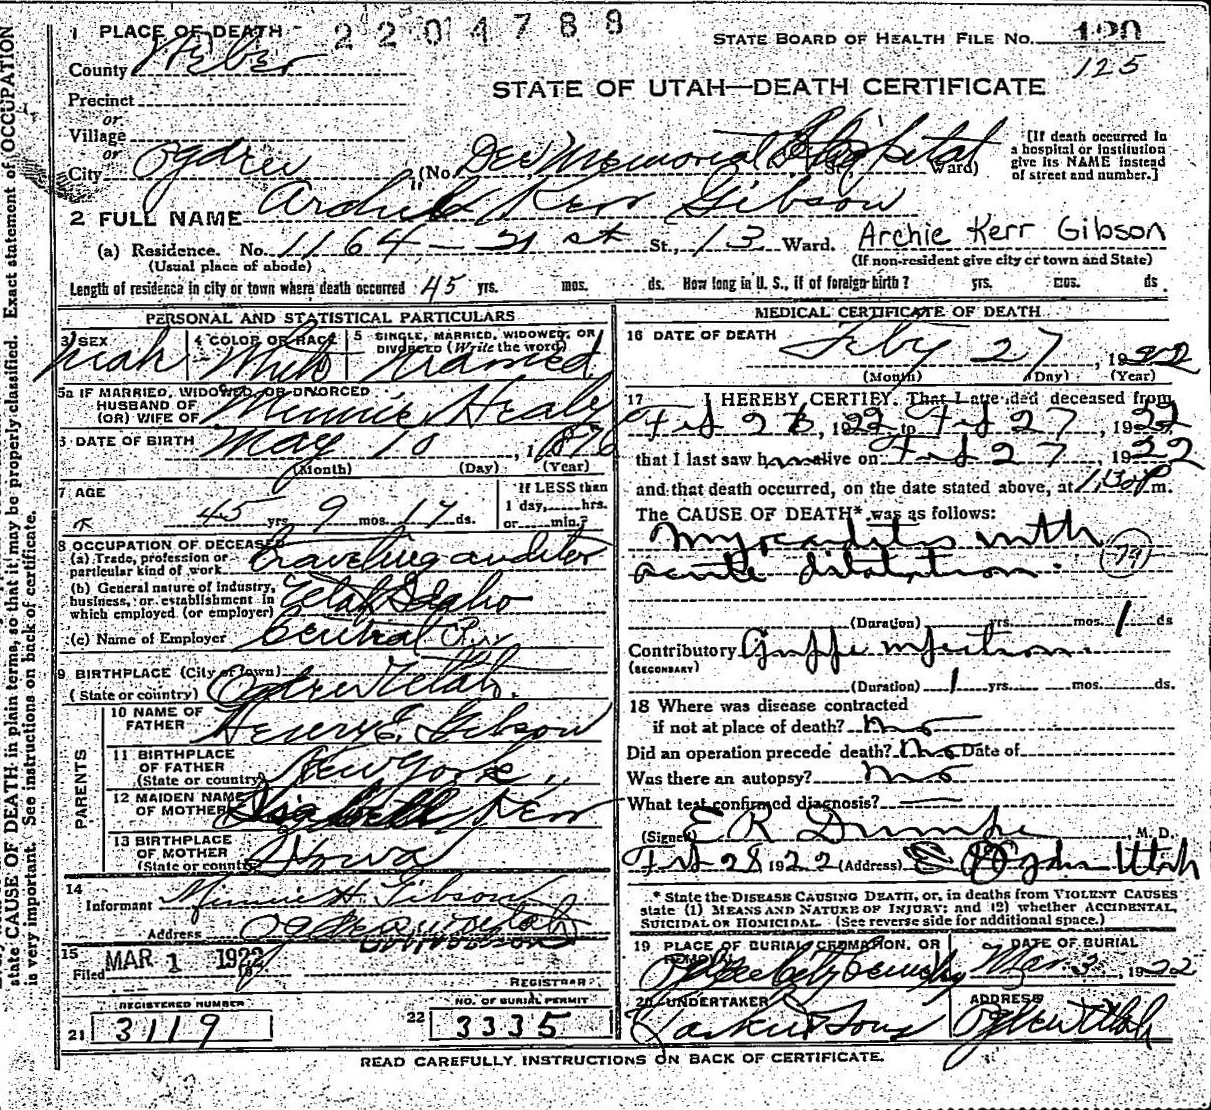 1 PLACE OF DEATH 2204788
STATE BOARD OF HEALTH FILE NO. 120
125
County Weber
STATE OF UTAH—DEATH CERTIFICATE
Precinct
or
Village
or
City Ogden (No. Dee Memorial Hospital St., Ward)
[If death occurred in
a hospital or institution
give its NAME instead
of street and number.]
2 FULL NAME Archie Kerr Gibson
(a) Residence. No. 1164 – 21 st St., 13 Ward. Archie Kerr Gibson
(Usual place of abode) (If non-resident give city or town and State)
Length of residence in city or town where death occurred 45 yrs. mos. ds. How long in U. S., if of foreign birth? yrs. mos. ds.
PERSONAL AND STATISTICAL PARTICULARS
3 SEX Male 4 COLOR OR RACE White 5 SINGLE, MARRIED, WIDOWED, OR
DIVORCED (Write the word) Married
5a IF MARRIED, WIDOWED, OR DIVORCED
HUSBAND OF
(OR) WIFE OF Minnie Healy
6 DATE OF BIRTH May 10, 1876
(Month) (Day) (Year)
7 AGE 45 yrs. 9 mos. 17 ds.
If LESS than
1 day, hrs.
or min.?
8 OCCUPATION OF DECEASED
(a) Trade, profession or
particular kind of work traveling auditor
(b) General nature of industry,
business, or establishment in
which employed (or employer) Utah Idaho
(c) Name of Employer Central
9 BIRTHPLACE (City or Town)
(State or country) Ogden Utah.
PARENTS
10 NAME OF
FATHER Henry E. Gibson
11 BIRTHPLACE
OF FATHER
(State or country) New York
12 MAIDEN NAME
OF MOTHER Isabell Kerr
13 BIRTHPLACE
OF MOTHER
(State or country) Iowa
14
Informant Minnie H. Gibson
Address Ogden Utah
15
Filed MAR 1 1922
REGISTRAR
REGISTERED NUMBER
21 3119
NO. OF BURIAL PERMIT
22 3335
MEDICAL CERTIFICATE OF DEATH
16 DATE OF DEATH Feby 27, 1922
(Month) (Day) (Year)
17 I HEREBY CERTIFY, That I attended deceased from
Feb 23, 1922 to Feb 27, 1922
that I last saw him alive on Feb 27 1922
and that death occurred, on the date stated above, at 1:30 P m.
The CAUSE OF DEATH* was as follows:
Myocarditis with
acute dilatation.
(Duration) yrs. mos. 1 ds
Contributory Grippe infection
(SECONDARY)
(Duration) 1 yrs. mos. ds.
18 Where was disease contracted
if not at place of death? no
Did an operation precede death? no Date of
Was there an autopsy? no
What test confirmed diagnosis?
(Signed) E R Dumke, M. D.
Feb 28 1922 (Address) Ogden Utah
* State the DISEASE CAUSING DEATH, or, in deaths from VIOLENT CAUSES
state (1) MEANS AND NATURE OF INJURY; and (2) whether ACCIDENTAL,
SUICIDAL OR HOMICIDAL. (See reverse side for additional space.)
19 PLACE OF BURIAL, CREMATION, OR
REMOVAL DATE OF BURIAL
Ogden City Cemetery Mar 3 1922
20 UNDERTAKER ADDRESS
Larkin & Sons Ogden Utah
READ CAREFULLY INSTRUCTIONS ON BACK OF CERTIFICATE.
state CAUSE OF DEATH in plain terms, so that it may be properly classified. Exact statement of OCCUPATION
is very important. See instructions on back of certificate.